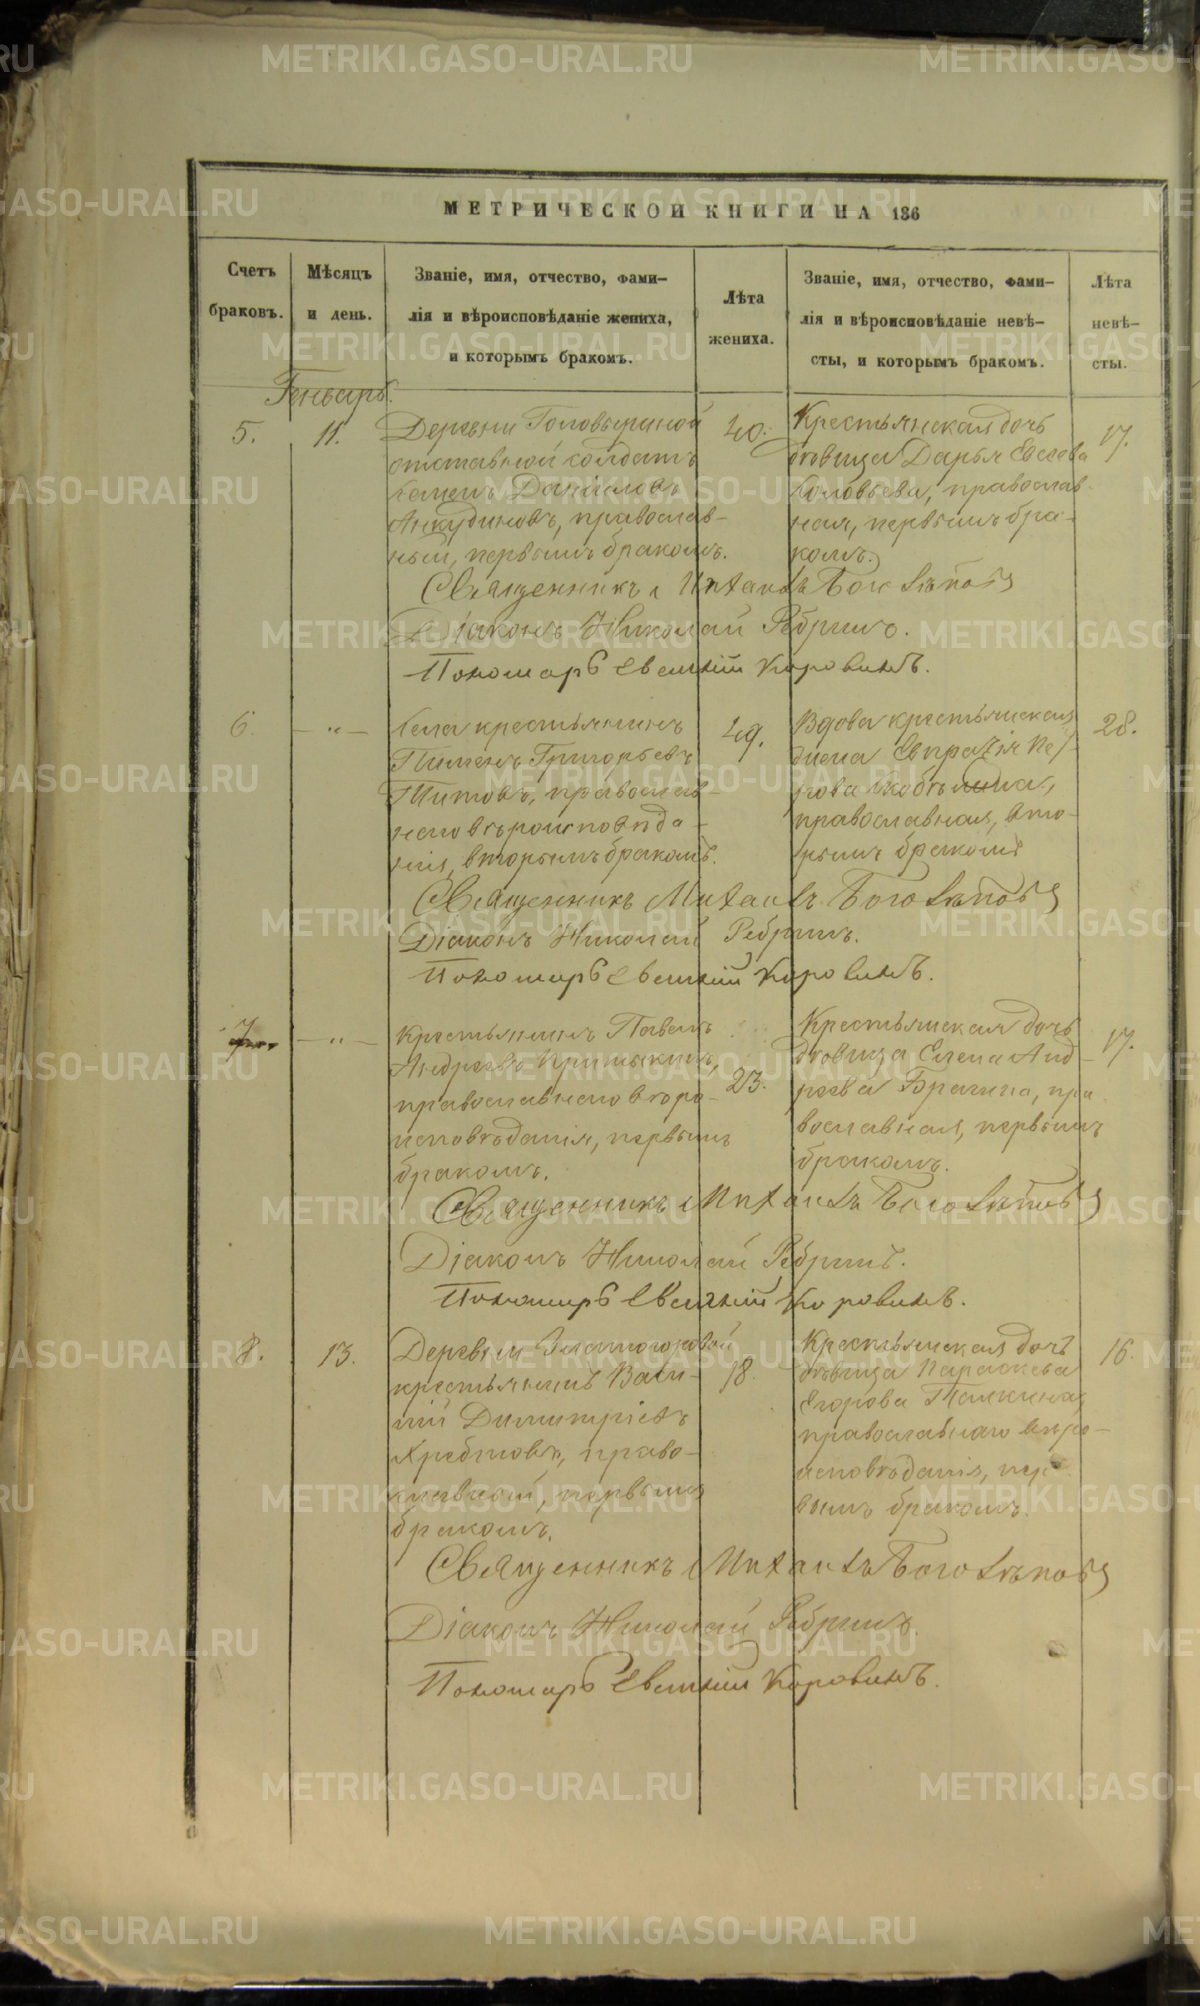 МЕТРИЧЕСКОЙ КНИГИ НА 186
Счетъ браковъ.
Мѣсяцъ и день.
Званіе, имя, отчество, фами-
лія и вѣроисповѣданіе жениха,
и которымъ бракомъ.
Лѣта
жениха.
Званіе, имя, отчество, фами-
лія и вѣроисповѣданіе невѣ-
сты, и которымъ бракомъ.
Лѣта
невѣ-
сты.
Геньварь.
5.
11.
Деревни
отставной солдатъ
Даниловъ
Анкудиновъ, православ-
ный, первымъ бракомъ.
40.
Крестьянская дочь
дѣвица Дарья
Соловьева, православ-
ная, первымъ бра-
комъ.
17.
Священникъ Михаилъ Боголѣповъ
Діаконъ Николай Ребринъ.
Пономарь Евгеній Коровинъ.
6.
– „ –
Села крестьянинъ
Пименъ Григорьевъ
Титовъ, православ-
наго вѣроисповѣда-
нія, вторымъ бракомъ.
49.
Вдова крестьянская
жена Евпраксія Пет-
рова
православная, вто-
рымъ бракомъ
28.
Священникъ Михаилъ Боголѣповъ
Діаконъ Николай Ребринъ.
Пономарь Евгеній Коровинъ.
7.
– „ –
Крестьянинъ Павелъ
Андреевъ
православнаго вѣро-
исповѣданія, первымъ
бракомъ.
23.
Крестьянская дочь
дѣвица Елена Анд-
реева Брагина, пра-
вославная, первымъ
бракомъ.
17.
Священникъ Михаилъ Боголѣповъ
Діаконъ Николай Ребринъ.
Пономарь Евгеній Коровинъ.
8.
13.
Деревни Златогоровой
крестьянинъ Васи-
лій Димитріевъ
Хребтовъ, право-
славный, первымъ
бракомъ.
18.
Крестьянская дочь
дѣвица Параскева
Егорова
православнаго вѣро-
исповѣданія, пер-
вымъ бракомъ.
16.
Священникъ Михаилъ Боголѣповъ
Діаконъ Николай Ребринъ.
Пономарь Евгеній Коровинъ.
METRIKI.GASO-URAL.RU